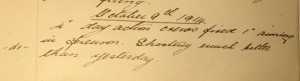 October 9th 1914.
4" day action course fired 1" aiming
-do- in forenoon. Shooting much better
than yesterday.